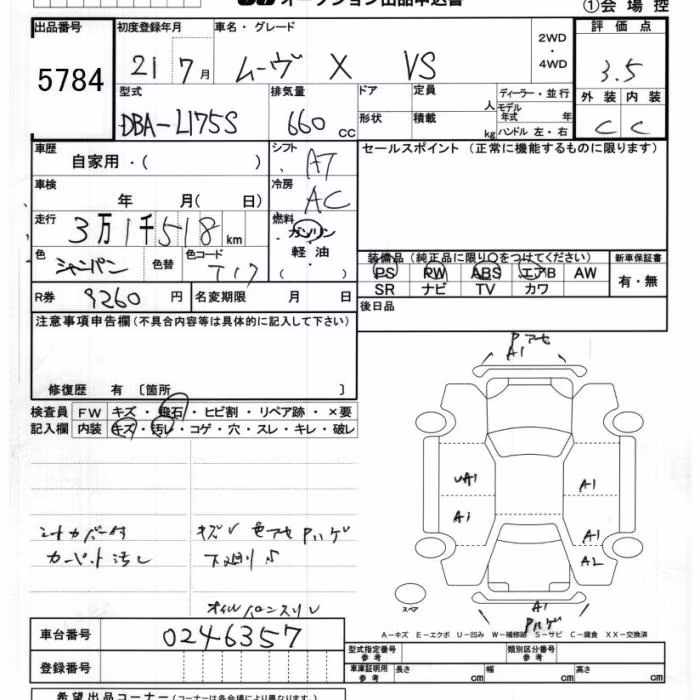 オークション出品申込書
①会場控
出品番号 初度登録年月 車名・グレード 評価点
5784 21 7月 ムーヴ X VS 2WD・4WD 3.5
型式 排気量 ドア 定員 人 ディーラー・並行 外装 内装
DBA-L175S 660 cc 形状 積載 kg モデル年式 年 C C
ハンドル 左・右
車歴 シフト セールスポイント (正常に機能するものに限ります)
自家用・( ) AT
車検 冷房
年 月( 日) AC
走行 燃料
3万1千518km ガソリン
軽油
( )
色 色替 色コード 装備品(純正品に限り○をつけてください) 新車保証書
シャンパン T17 PS PW ABS エアB AW 有・無
SR ナビ TV カワ
R券 9260円 名変期限 月 日 後日品
注意事項申告欄(不具合内容等は具体的に記入して下さい)
修復歴 有 〔箇所 〕
検査員 FW キズ・飛石・ヒビ割・リペア跡・×要
記入欄 内装 キズ・汚レ・コゲ・穴・スレ・キレ・破レ
Pアセ
A1
UA1 A1
A1 A1
A2
シートカバー付 キズV 色アセ Pハゲ
カーペット汚レ 下廻りS
オイルパンスリV
スペア
A1
Pハゲ
A−キズ E−エクボ U−凹み W−補修跡 S−サビ C−腐食 XX−交換済
車台番号 0246357
登録番号
型式指定番号 参考 類別区分番号 参考
車庫証明用 参考 長さ cm 幅 cm 高さ cm
希望出品コーナー(コーナーは各会場により異なります。)